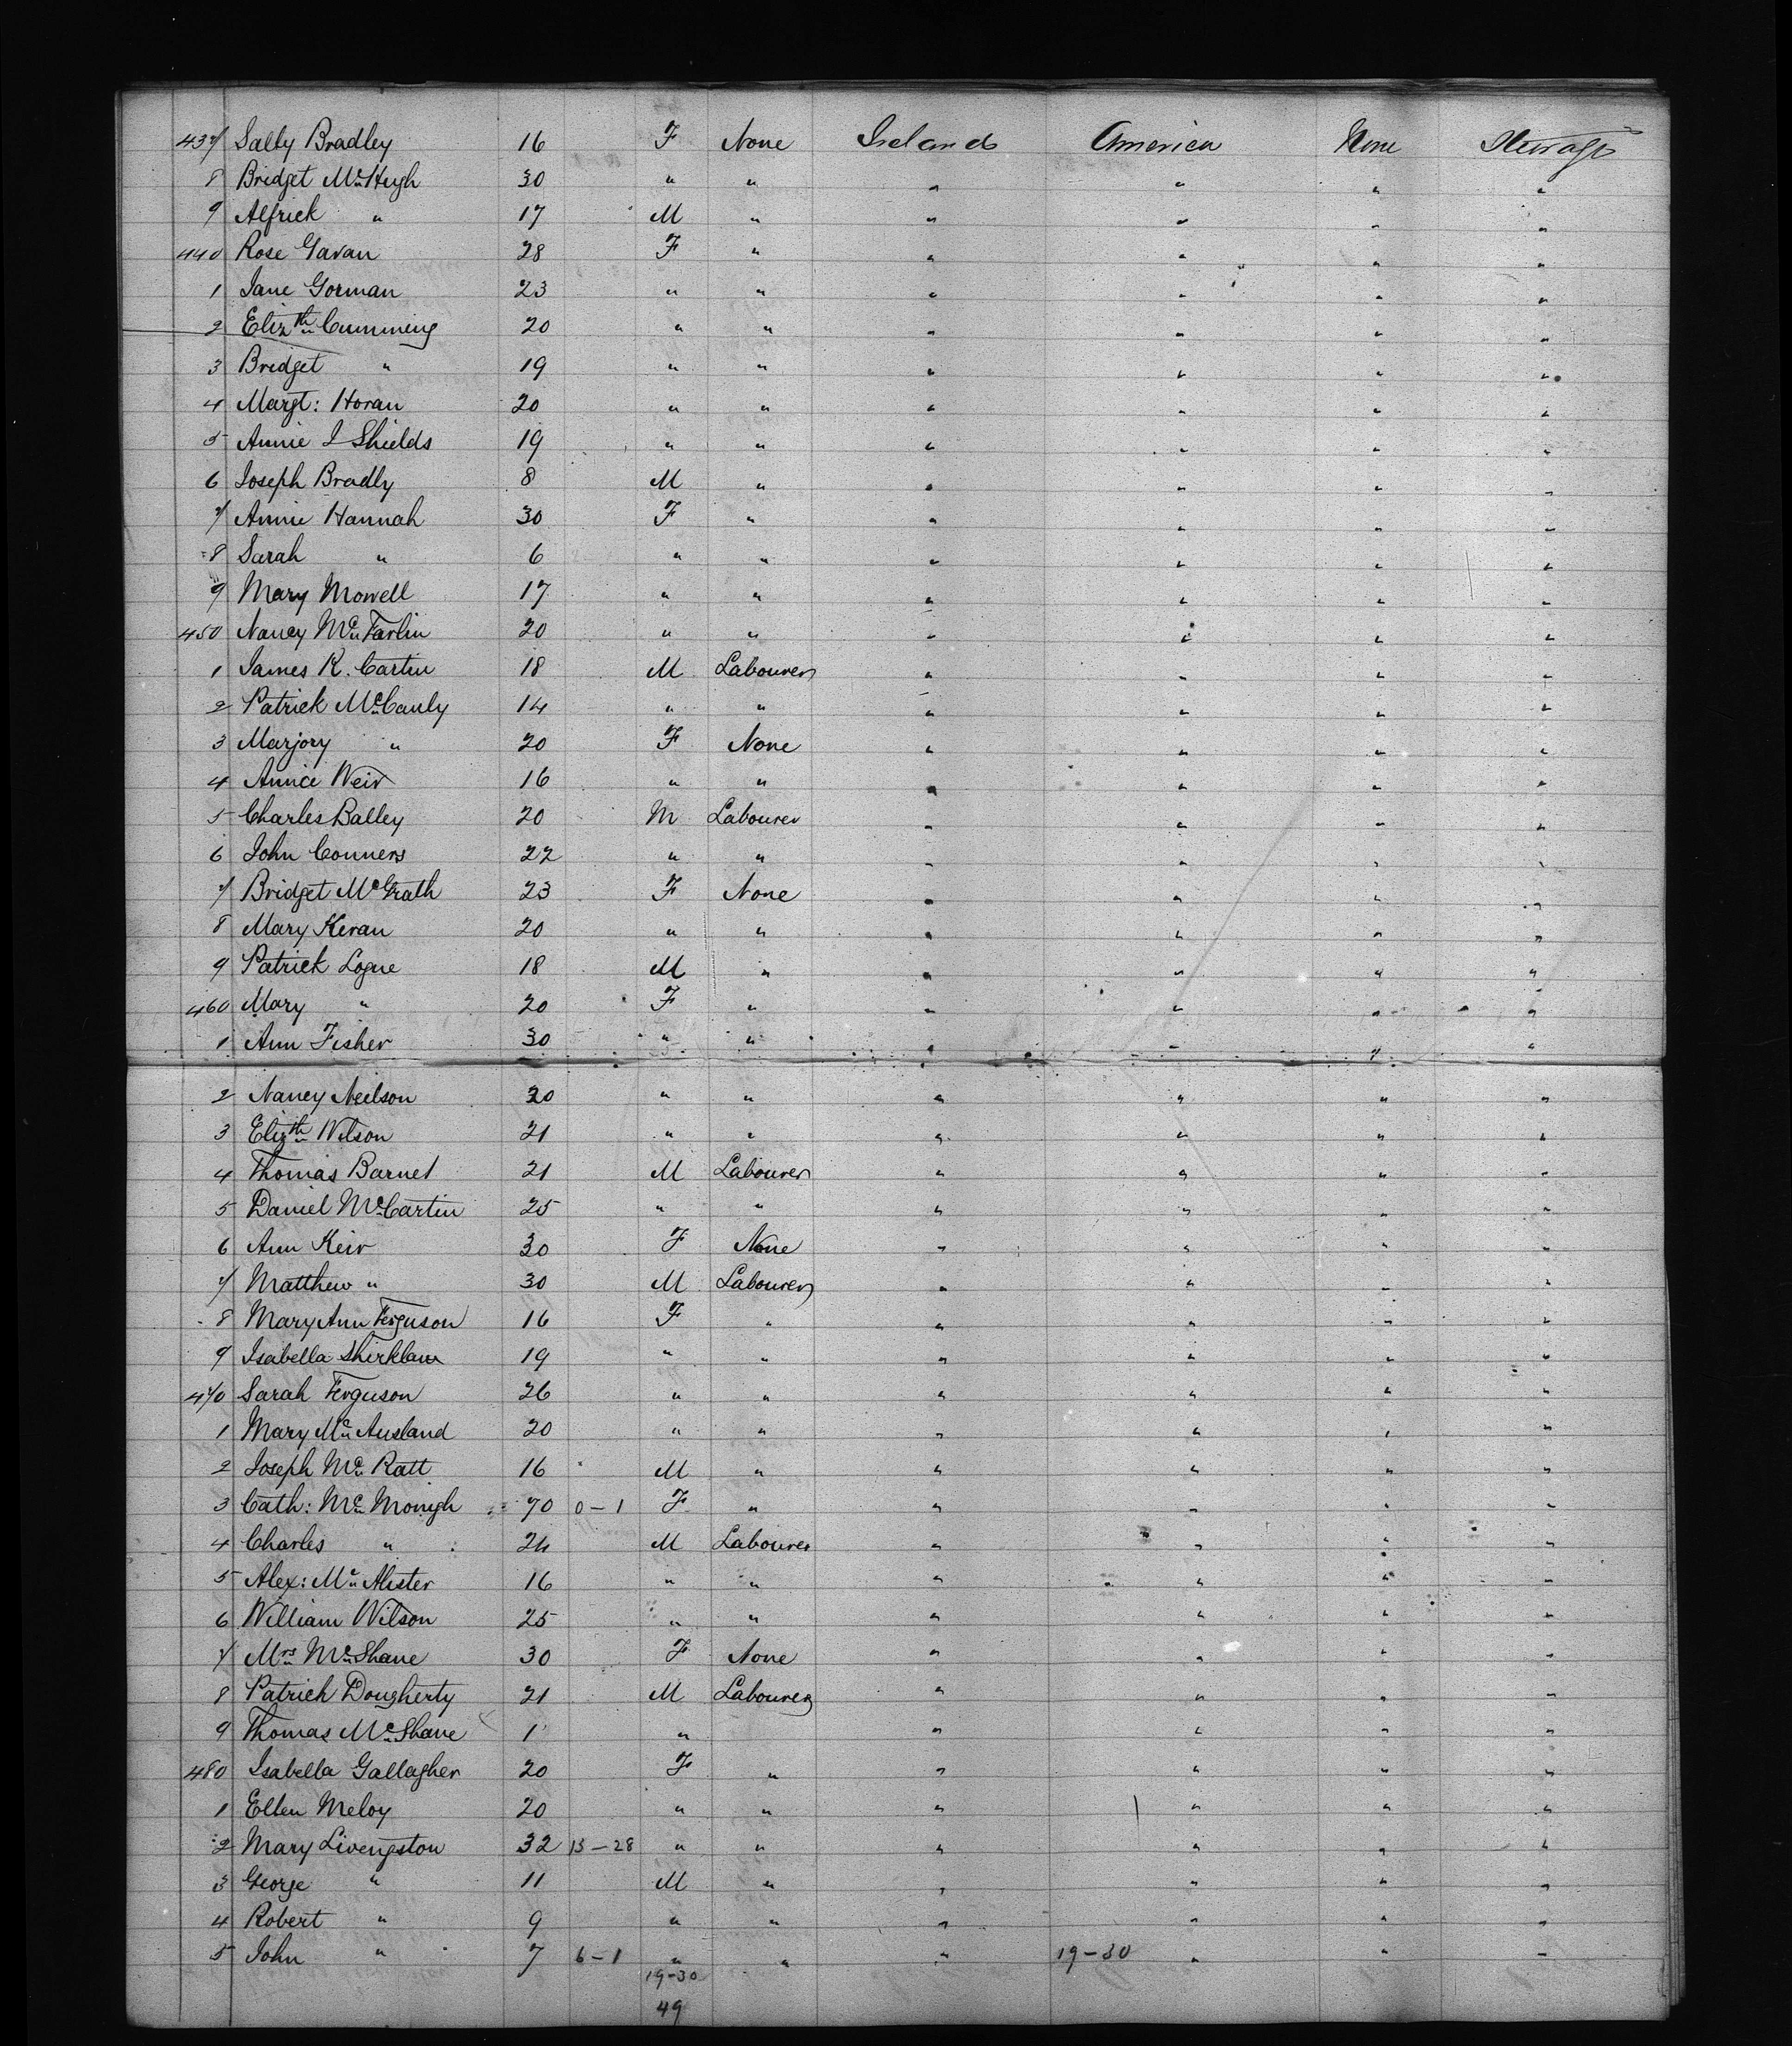 437 Sally Bradley 16 F None Ireland America None Steerage
8 Bridget McHugh 30 " " " " " "
9 Alfrick " 17 M " " " " "
440 Rose Gavan 28 F " " " " "
1 Jane Gorman 23 " " " " " "
2 Elizth Cumming 20 " " " " " "
3 Bridget " 19 " " " " " "
4 Margt: Horan 20 " " " " " "
5 Annie I Shields 19 " " " " " "
6 Joseph Bradly 8 M " " " " "
7 Annie Hannah 30 F " " " " "
8 Sarah " 6 " " " " " "
9 Mary Mowell 17 " " " " " "
450 Nancy Mc Farlin 20 " " " " " "
1 James R. Cartin 18 M Labourer " " " "
2 Patrick McCauly 14 " " " " " "
3 Marjory " 20 F None " " " "
4 Annie Weir 16 " " " " " "
5 Charles Balley 20 M Labourer " " " "
6 John Conners 22 " " " " " "
7 Bridget McGrath 23 F None " " " "
8 Mary Keran 20 " " " " " "
9 Patrick Logue 18 M " " " " "
460 Mary " 20 F " " " " "
1 Ann Fisher 30 " " " " " "
2 Nancy Neilson 20 " " " " " "
3 Elizth Wilson 21 " " " " " "
4 Thomas Barnet 21 M Labourer " " " "
5 Daniel McCartin 25 " " " " " "
6 Ann Keir 30 F None " " " "
7 Matthew " 30 M Labourer " " " "
8 Mary Ann Ferguson 16 F " " " " "
9 Isabella Shirklaw 19 " " " " " "
470 Sarah Ferguson 26 " " " " " "
1 Mary Mc Ausland 20 " " " " " "
2 Joseph Mc Ratt 16 M " " " " "
3 Cath: Mc Monigh 70 0-1 F " " " " "
4 Charles " 24 M Labourer " " " "
5 Alex: Mc Alister 16 " " " " " "
6 William Wilson 25 " " " " " "
7 Mrs McShane 30 F None " " " "
8 Patrick Dougherty 21 M Labourer " " " "
9 Thomas McShane 1 " " " " "
480 Isabella Gallagher 20 F " " " " "
1 Ellen Meloy 20 " " " " " "
2 Mary Livengston 32 13-28 " " " " " "
3 George " 11 M " " " " "
4 Robert " 9 " " " " " "
5 John " 7 6-1 " " " 19-30 " " "
19-30
49